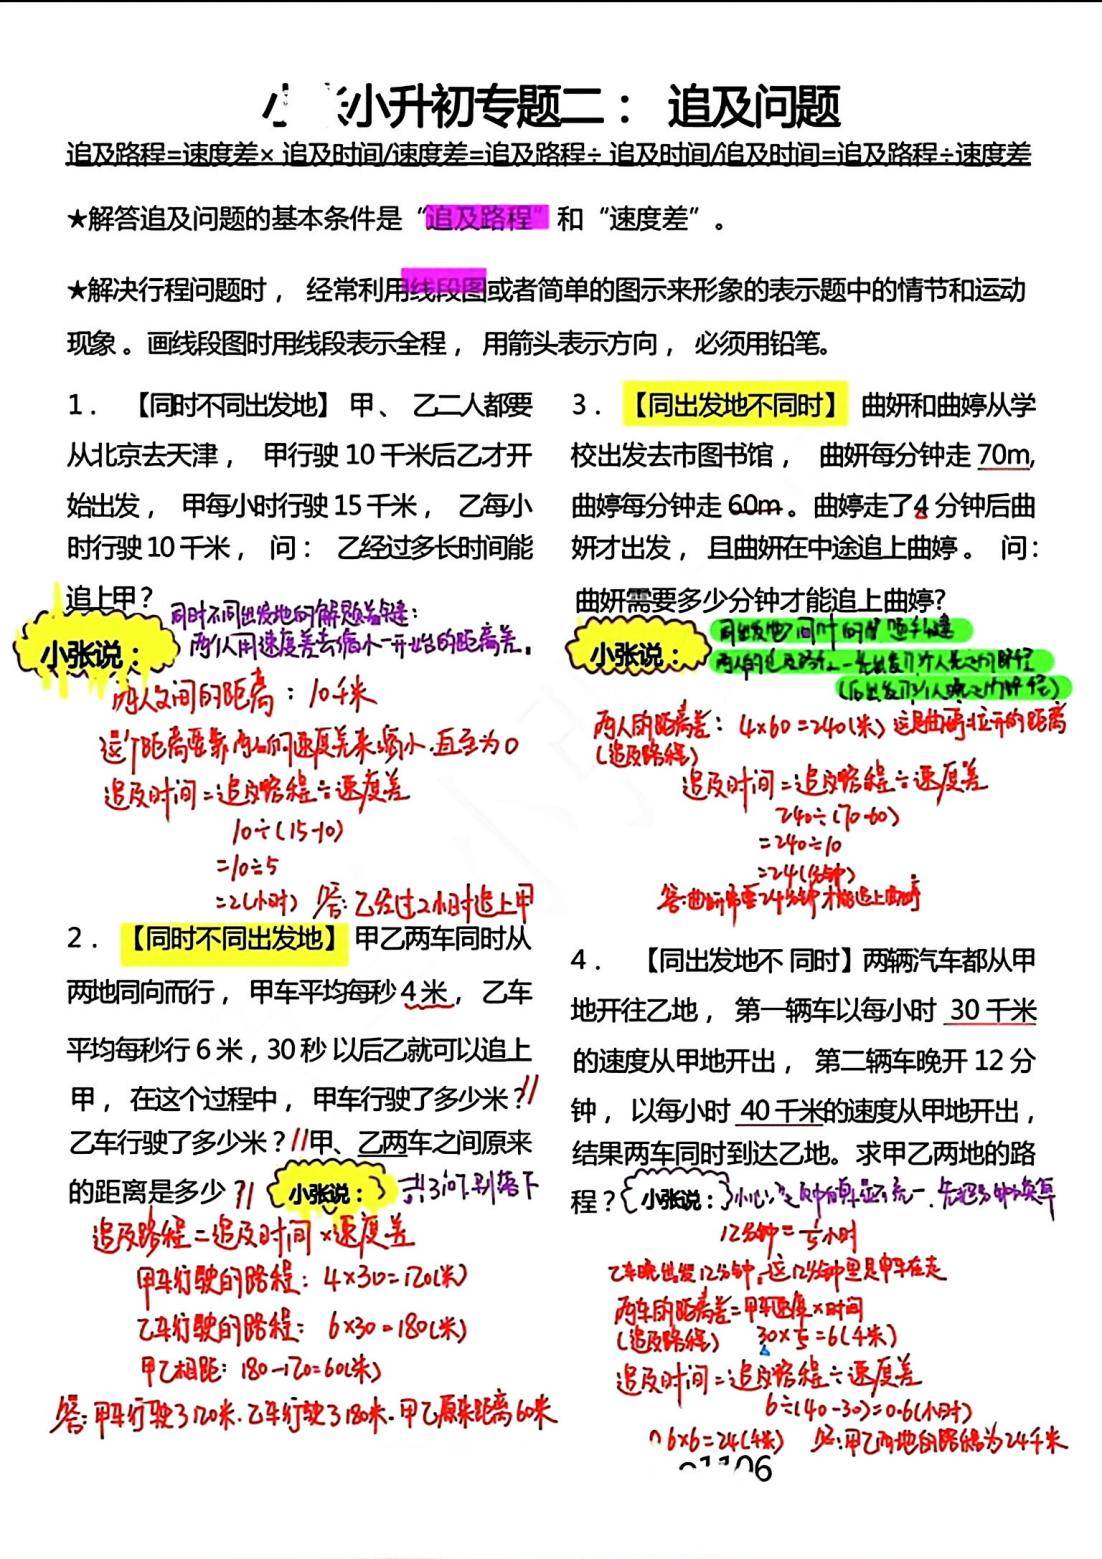 小张小升初专题二： 追及问题
追及路程=速度差× 追及时间/速度差=追及路程÷ 追及时间/追及时间=追及路程÷速度差
★解答追及问题的基本条件是“追及路程”和“速度差”。
★解决行程问题时， 经常利用线段图或者简单的图示来形象的表示题中的情节和运动
现象。画线段图时用线段表示全程， 用箭头表示方向， 必须用铅笔。
1． 【同时不同出发地】 甲、 乙二人都要
从北京去天津， 甲行驶 10 千米后乙才开
始出发， 甲每小时行驶 15 千米， 乙每小
时行驶 10 千米， 问： 乙经过多长时间能
追上甲？
同时不同出发地的解题关键：
小张说：
两人用速度差去缩小一开始的距离差。
两人之间的距离：10千米
这个距离要靠两人的速度差来缩小.直至为0
追及时间=追及路程÷速度差
10÷(15-10)
=10÷5
=2(小时) 答：乙经过2小时追上甲
2． 【同时不同出发地】 甲乙两车同时从
两地同向而行， 甲车平均每秒 4 米， 乙车
平均每秒行 6 米，30 秒 以后乙就可以追上
甲， 在这个过程中， 甲车行驶了多少米？
乙车行驶了多少米？ 甲、乙两车之间原来
的距离是多少？
小张说： 共3问.别落下
追及路程=追及时间×速度差
甲车行驶的路程：4×30=120(米)
乙车行驶的路程：6×30=180(米)
甲乙相距：180-120=60(米)
答：甲车行驶了120米.乙车行驶了180米.甲乙原来距离60米
3． 【同出发地不同时】 曲妍和曲婷从学
校出发去市图书馆， 曲妍每分钟走 70m,
曲婷每分钟走 60m 。曲婷走了 4 分钟后曲
妍才出发， 且曲妍在中途追上曲婷。 问：
曲妍需要多少分钟才能追上曲婷?
小张说：
两人的距离差：4×60=240(米) 这是曲婷拉开的距离
(追及路程)
追及时间=追及路程÷速度差
240÷(70-60)
=240÷10
=24(分钟)
答：曲妍需要24分钟才能追上曲婷
4． 【同出发地不 同时】两辆汽车都从甲
地开往乙地， 第一辆车以每小时 30 千米
的速度从甲地开出， 第二辆车晚开 12 分
钟， 以每小时 40 千米的速度从甲地开出，
结果两车同时到达乙地。求甲乙两地的路
程？ 小张说：
12分钟=1/5小时
乙车晚出发12分钟，这12分钟里是甲车在走
两车的距离差=甲车速度×时间
(追及路程) 30×1/5=6(千米)
追及时间=追及路程÷速度差
6÷(40-30)=0.6(小时)
答：甲乙两地的路程为24千米